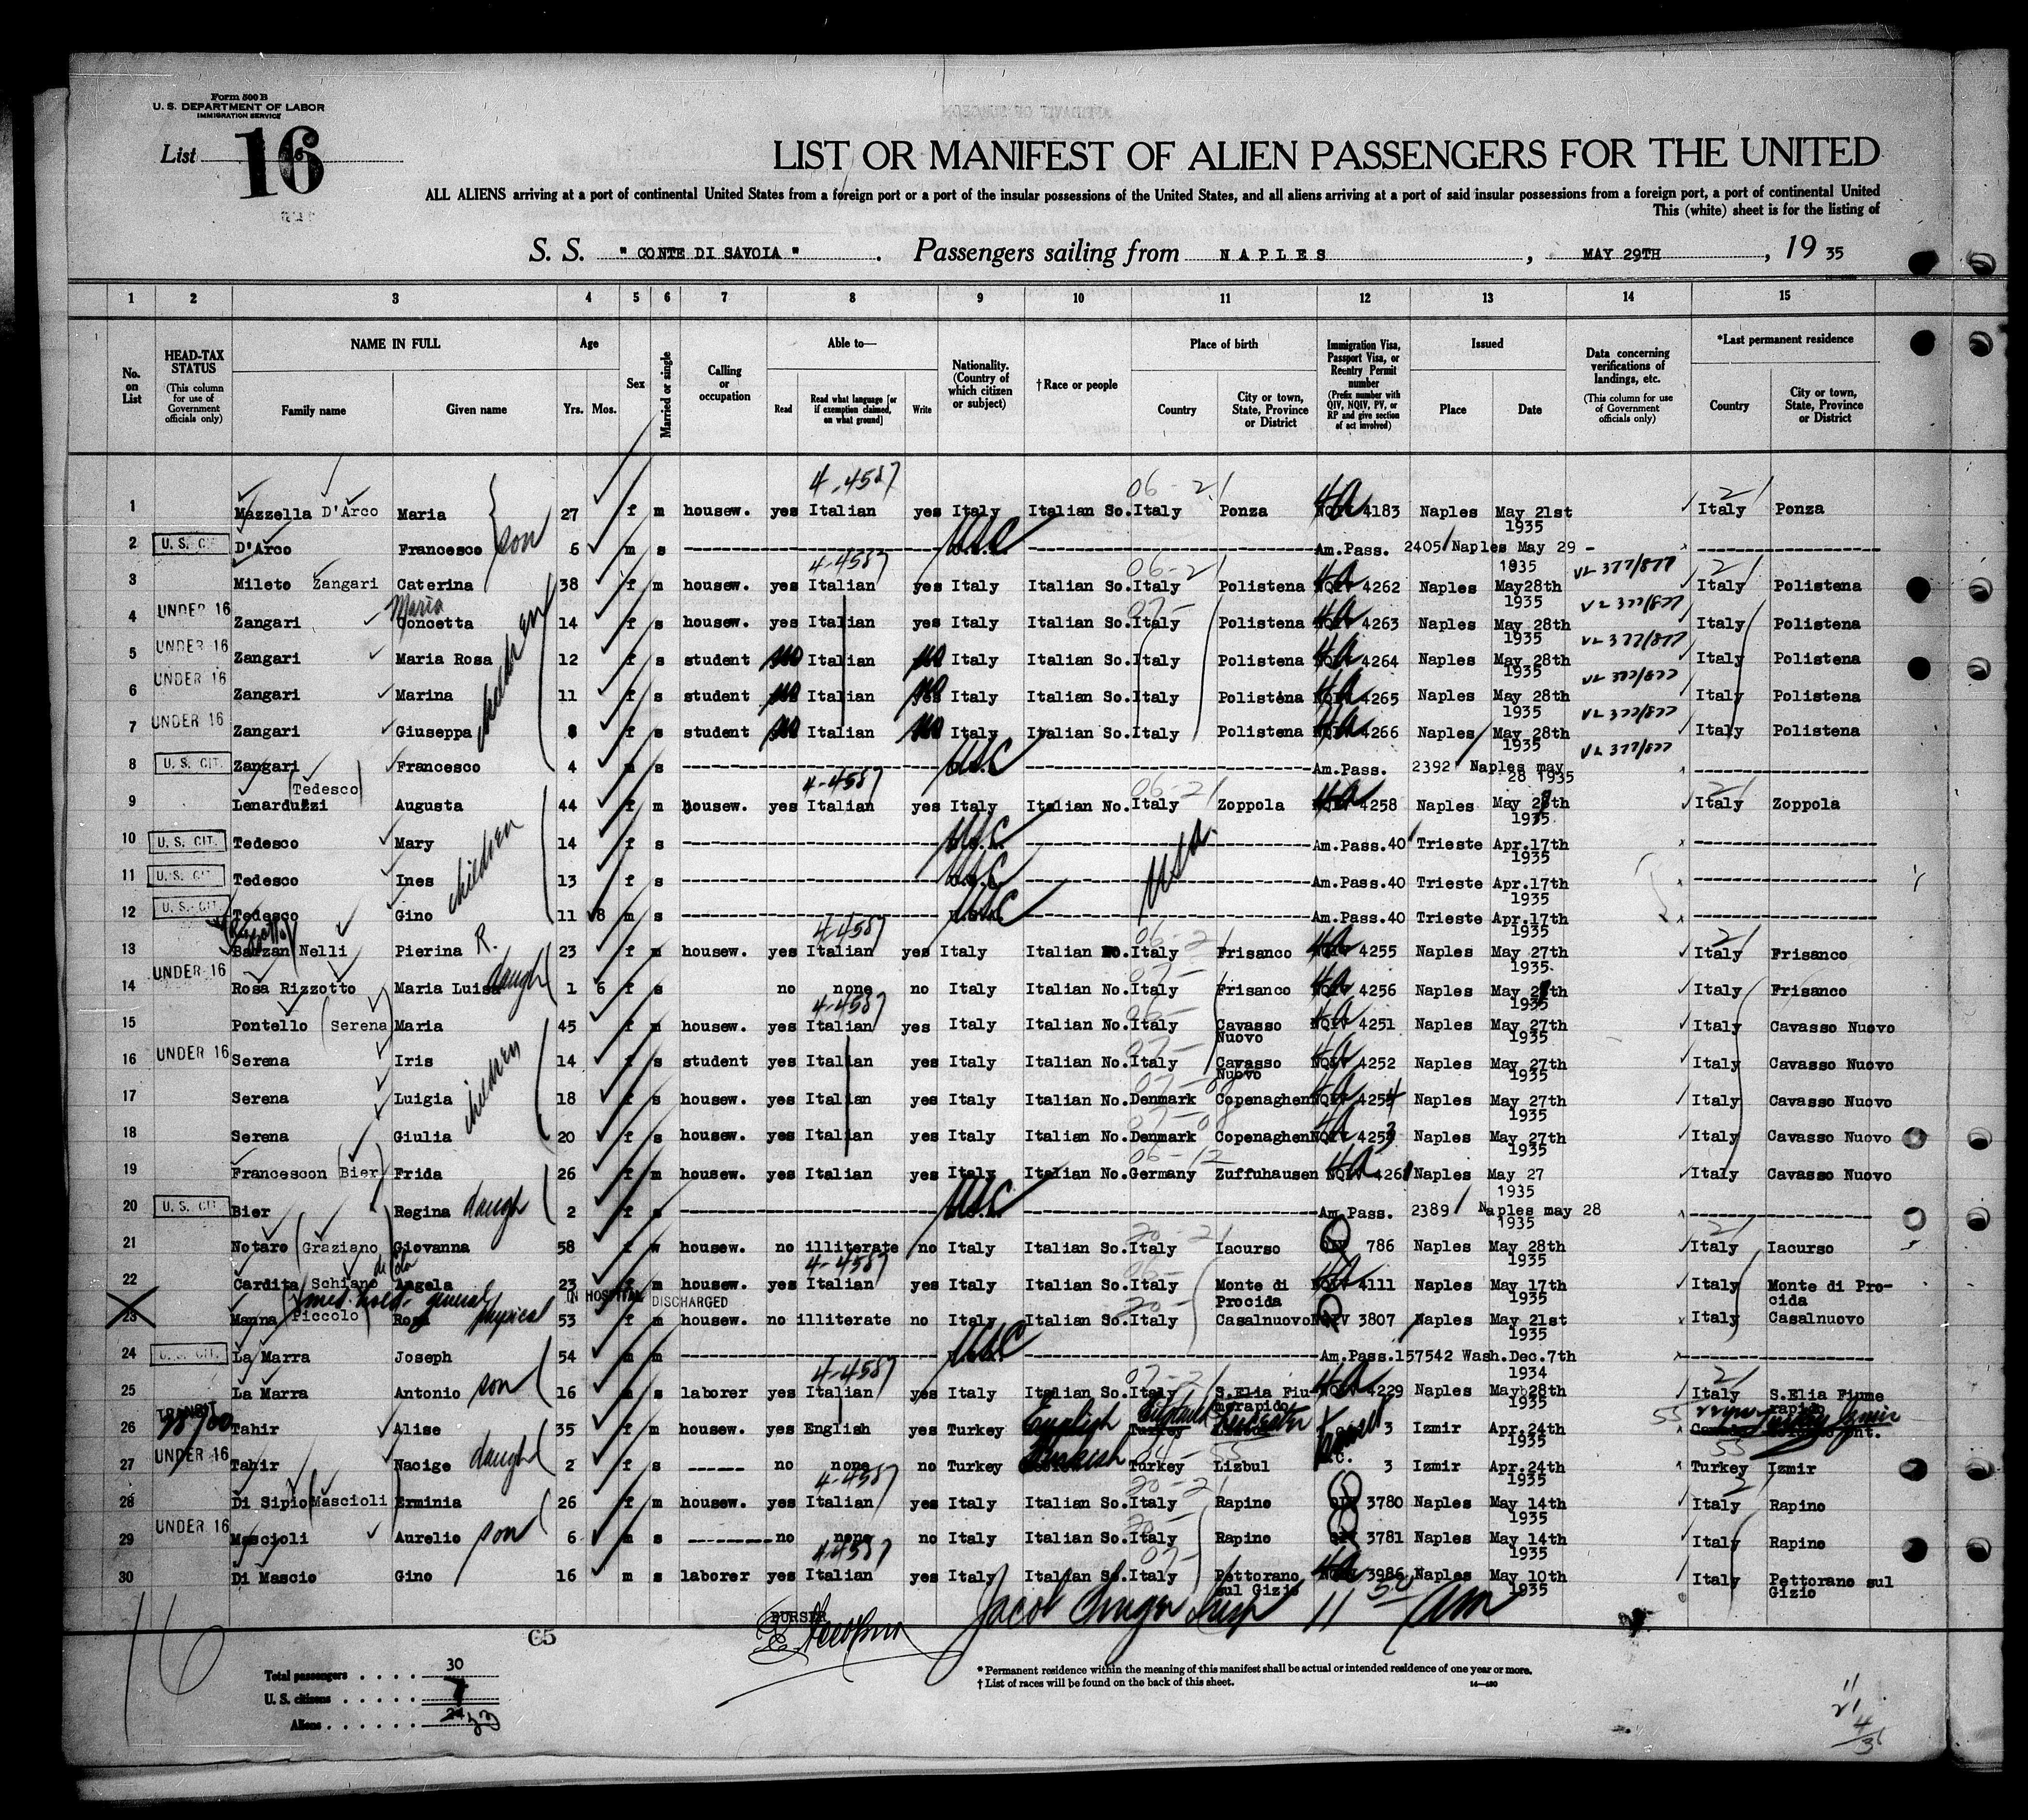 Form 500 B
U. S. DEPARTMENT OF LABOR
IMMIGRATION SERVICE
List 16
LIST OR MANIFEST OF ALIEN PASSENGERS FOR THE UNITED
ALL ALIENS arriving at a port of continental United States from a foreign port or a port of the insular possessions of the United States, and all aliens arriving at a port of said insular possessions from a foreign port, a port of continental United
This (white) sheet is for the listing of
S. S. "CONTE DI SAVOIA". Passengers sailing from NAPLES, MAY 29TH, 1935
1 2 3 4 5 6 7 8 9 10 11 12 13 14 15
No. on List
HEAD-TAX STATUS (This column for use of Government officials only)
NAME IN FULL Family name Given name
Age Yrs. Mos.
Sex
Married or single
Calling or occupation
Able to— Read Read what language [or if exemption claimed, on what ground] Write
Nationality. (Country of which citizen or subject)
†Race or people
Place of birth Country City or town, State, Province or District
Immigration Visa, Passport Visa, or Reentry Permit number (Prefix number with QIV, NQIV, PV, or RP and give section of act involved)
Issued Place Date
Data concerning verifications of landings, etc. (This column for use of Government officials only)
*Last permanent residence Country City or town, State, Province or District
4-4587 06-21 2/
1 Mazzella D'Arco Maria 27 f m housew. yes Italian yes Italy Italian So. Italy Ponza 4a 4183 Naples May 21st 1935 Italy Ponza
2 U. S. CIT. D'Arco Francesco son 6 m s USC Am.Pass. 2405 Naples May 29 - 1935
4-4587 06-21 VL 377/877 2/
3 Mileto Zangari Caterina 38 f m housew. yes Italian yes Italy Italian So. Italy Polistena 4a 4262 Naples May28th 1935 Italy Polistena
4 UNDER 16 Zangari Maria Concetta 14 f s housew. yes Italian yes Italy Italian So. Italy Polistena 4a 4263 Naples May 28th 1935 VL 377/877 Italy Polistena
5 UNDER 16 Zangari Maria Rosa children 12 f s student no Italian no Italy Italian So. Italy Polistena 4a 4264 Naples May 28th 1935 VL 377/877 Italy Polistena
6 UNDER 16 Zangari Marina 11 f s student no Italian no Italy Italian So. Italy Polistena 4a 4265 Naples May 28th 1935 VL 377/877 Italy Polistena
7 UNDER 16 Zangari Giuseppa 8 f s student no Italian no Italy Italian So. Italy Polistena 4a 4266 Naples May 28th 1935 VL 377/877 Italy Polistena
8 U. S. CIT. Zangari Francesco 4 m s USC Am.Pass. 2392 Naples may 28 1935 VL 377/877
4-4587 06-21 2/
9 Lenarduzzi (Tedesco) Augusta 44 f m housew. yes Italian yes Italy Italian No. Italy Zoppola 4a 4258 Naples May 28th 1935 Italy Zoppola
10 U. S. CIT. Tedesco Mary 14 f s USC Am.Pass.40 Trieste Apr.17th 1935
11 U. S. CIT. Tedesco Ines children 13 f s USC USA Am.Pass.40 Trieste Apr.17th 1935
12 U. S. CIT. Tedesco Gino 11 8 m s USC Am.Pass.40 Trieste Apr.17th 1935
4-4587 06-21 2/
13 Barzan Nelli Pierina R. 23 f m housew. yes Italian yes Italy Italian No. Italy Frisanco 4a 4255 Naples May 27th 1935 Italy Frisanco
14 UNDER 16 Rosa Rizzotto Maria Luisa daugh 1 6 f s no none no Italy Italian No. Italy Frisanco 4a 4256 Naples May 27th 1935 Italy Frisanco
4-4587
15 Pontello (Serena) Maria 45 f m housew. yes Italian yes Italy Italian No. Italy Cavasso Nuovo 4a 4251 Naples May 27th 1935 Italy Cavasso Nuovo
16 UNDER 16 Serena Iris children 14 f s student yes Italian yes Italy Italian No. Italy Cavasso Nuovo 4a 4252 Naples May 27th 1935 Italy Cavasso Nuovo
17 Serena Luigia 18 f s housew. yes Italian yes Italy Italian No. Denmark Copenaghen 4a 4254 Naples May 27th 1935 Italy Cavasso Nuovo
18 Serena Giulia 20 f s housew. yes Italian yes Italy Italian No. Denmark Copenaghen 4a 4253 Naples May 27th 1935 Italy Cavasso Nuovo
06-12
19 Francescon (Bier) Frida 26 f m housew. yes Italian yes Italy Italian No. Germany Zuffuhausen 4a 4261 Naples May 27 1935 Italy Cavasso Nuovo
20 U. S. CIT. Bier Regina daugh 2 f s USC Am.Pass. 2389 Naples may 28 1935
20-21 2/
21 Notaro (Graziano) Giovanna 58 f w housew. no illiterate no Italy Italian So. Italy Iacurso QIV 786 Naples May 28th 1935 Italy Iacurso
4-4587
22 Cardita (Schiano di Cola) Angela 23 f m housew. yes Italian yes Italy Italian So. Italy Monte di Procida 4a 4111 Naples May 17th 1935 Italy Monte di Procida
med. hold - general physical IN HOSPITAL DISCHARGED
23 Manna (Piccolo) Rosa 53 f m housew. no illiterate no Italy Italian So. Italy Casalnuovo QIV 3807 Naples May 21st 1935 Italy Casalnuovo
24 U. S. CIT. La Marra Joseph 54 m m USC Am.Pass.157542 Wash.Dec.7th 1934
4-4587 07-21 2/
25 La Marra Antonio son 16 m s laborer yes Italian yes Italy Italian So. Italy S.Elia Fiumerapido 4a 4229 Naples May 28th 1935 Italy S.Elia Fiume rapido
26 TRANSIT Tahir Alise 35 f m housew. yes English yes Turkey English England Leicester 3 Izmir Apr.24th 1935 Turkey Izmir
27 UNDER 16 Tahir Nacige daugh 2 f s no none no Turkey Turkish Turkey Lizbul 3 Izmir Apr.24th 1935 Turkey Izmir
4-4587 20-21 2/
28 Di Sipio (Mascioli) Erminia 26 f m housew. yes Italian yes Italy Italian So. Italy Rapino QIV 3780 Naples May 14th 1935 Italy Rapino
29 UNDER 16 Mascioli Aurelio son 6 m s no none no Italy Italian So. Italy Rapino QIV 3781 Naples May 14th 1935 Italy Rapino
4-4587 07-
30 Di Mascio Gino 16 m s laborer yes Italian yes Italy Italian So. Italy Pettorano sul Gizio 4a 3986 Naples May 10th 1935 Italy Pettorano sul Gizio
PURSER
Jacob Insp 11 50 am
16
65
Total passengers . . . . 30
U. S. citizens . . . . . 7
Aliens . . . . . . 24 23
* Permanent residence within the meaning of this manifest shall be actual or intended residence of one year or more.
† List of races will be found on the back of this sheet.
14—490